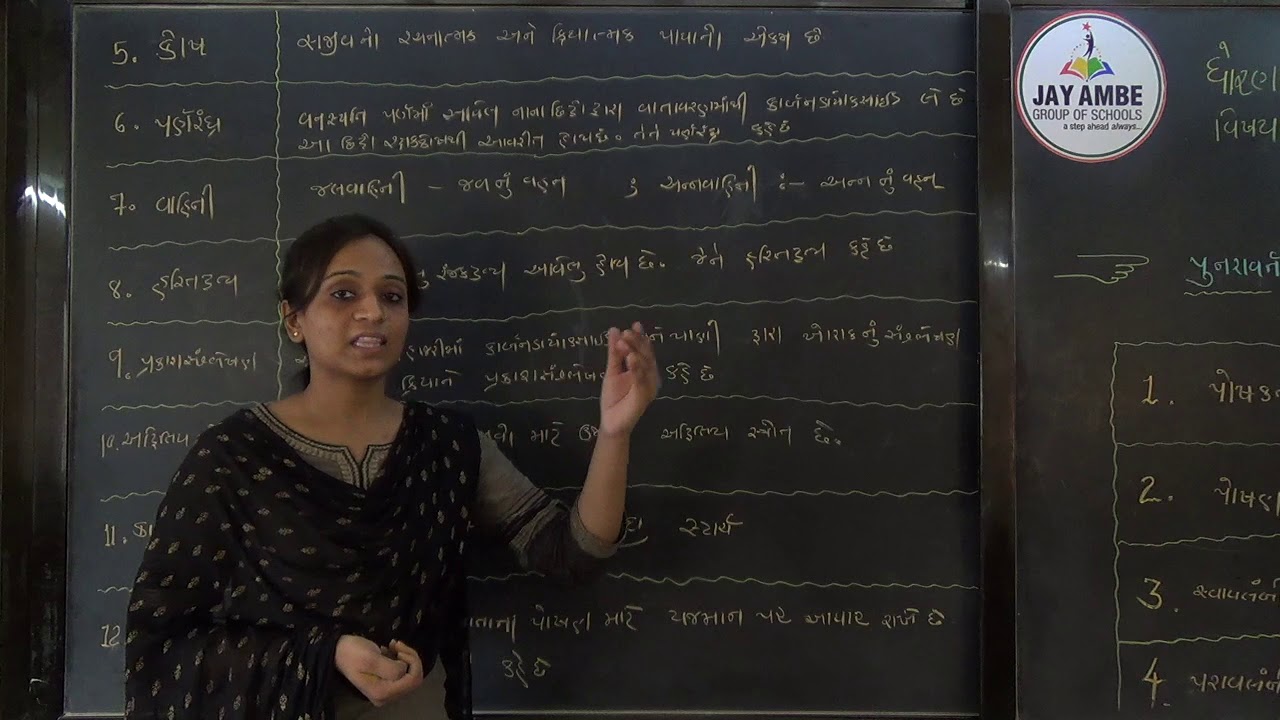 5. કોષ સજીવનો રચનાત્મક અને ક્રિયાત્મક પાયાનો એકમ છે
6. પર્ણરંધ્ર વનસ્પતિ પર્ણમાં આવેલ નાના છિદ્રો દ્વારા વાતાવરણમાંથી કાર્બનડાયોકસાઇડ લે છે
આ છિદ્રો રક્ષકકોષથી આવરીત હોય છે. તેને પર્ણરંધ્ર કહે છે
7. વાહિની જલવાહિની - જલનું વહન ; અન્નવાહિની :- અન્ન નું વહન
8. હરિતદ્રવ્ય રંજકદ્રવ્ય આવેલુ હોય છે. જેને હરિતદ્રવ્ય કહે છે
9. પ્રકાશસંશ્લેષણ કાર્બનડાયોકસાઇડ અને પાણી દ્વારા ખોરાકનું સંશ્લેષણ
ક્રિયાને પ્રકાશસંશ્લેષણ કહે છે
10. અંતિમ માટે અંતિમ સ્ત્રોત છે.
11. કા સ્ટાર્ચ
12. પોષણ માટે યજમાન પર આધાર રાખે છે
કહે છે
JAY AMBE
GROUP OF SCHOOLS
a step ahead always...
ધોરણ
વિષય
પુનરાવર્ત
1. પોષક
2. પોષણ
3. સ્વાવલંબી
4. પરાવલંબી